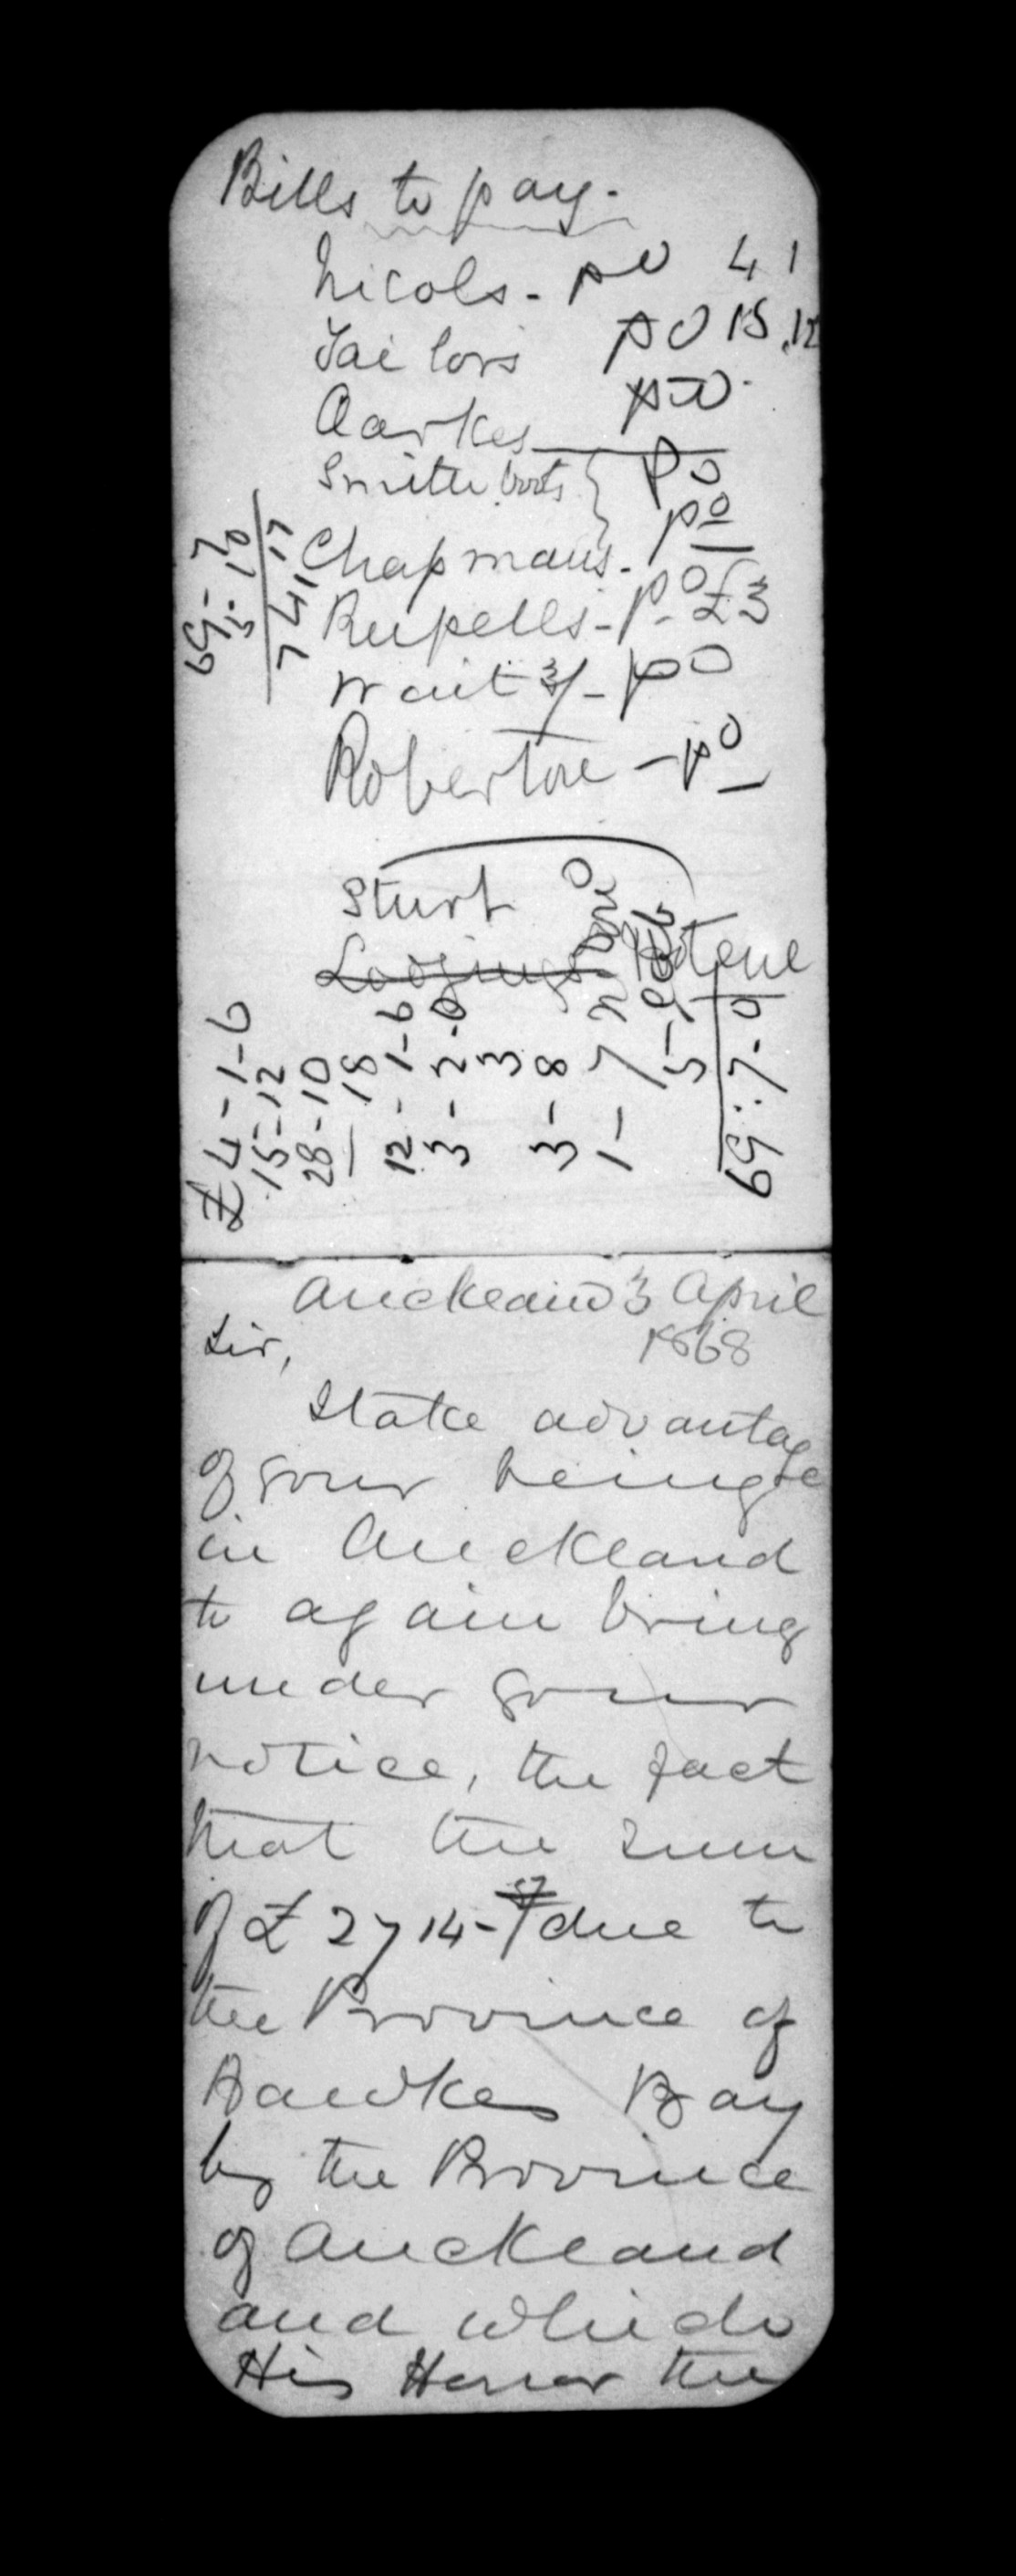 Bills to pay.
Nicols - pd 4 1
Tailors pd 15.12
pd.
Smith boots pd
Chapmans. pd
Russells - pd. £3
Wait 3/- pd
Robertore - pd
69 - 7
5 - 10
74, 17
Sturt
Lodgings
£ 4 - 1 - 6
15 - 12
28 - 10
18
12 - 1 - 6
3 - 2 - 0
3
3 - 8
1 - 7
5 -
69 : 7 - 0
Auckland 3 April
1868
Sir,
I take advantage
of your being
in Auckland
to again bring
under your
notice, the fact
that the sum
of £ 2714 - due to
the Province of
Hawkes Bay
by the Province
of Auckland
and which
His Honor the